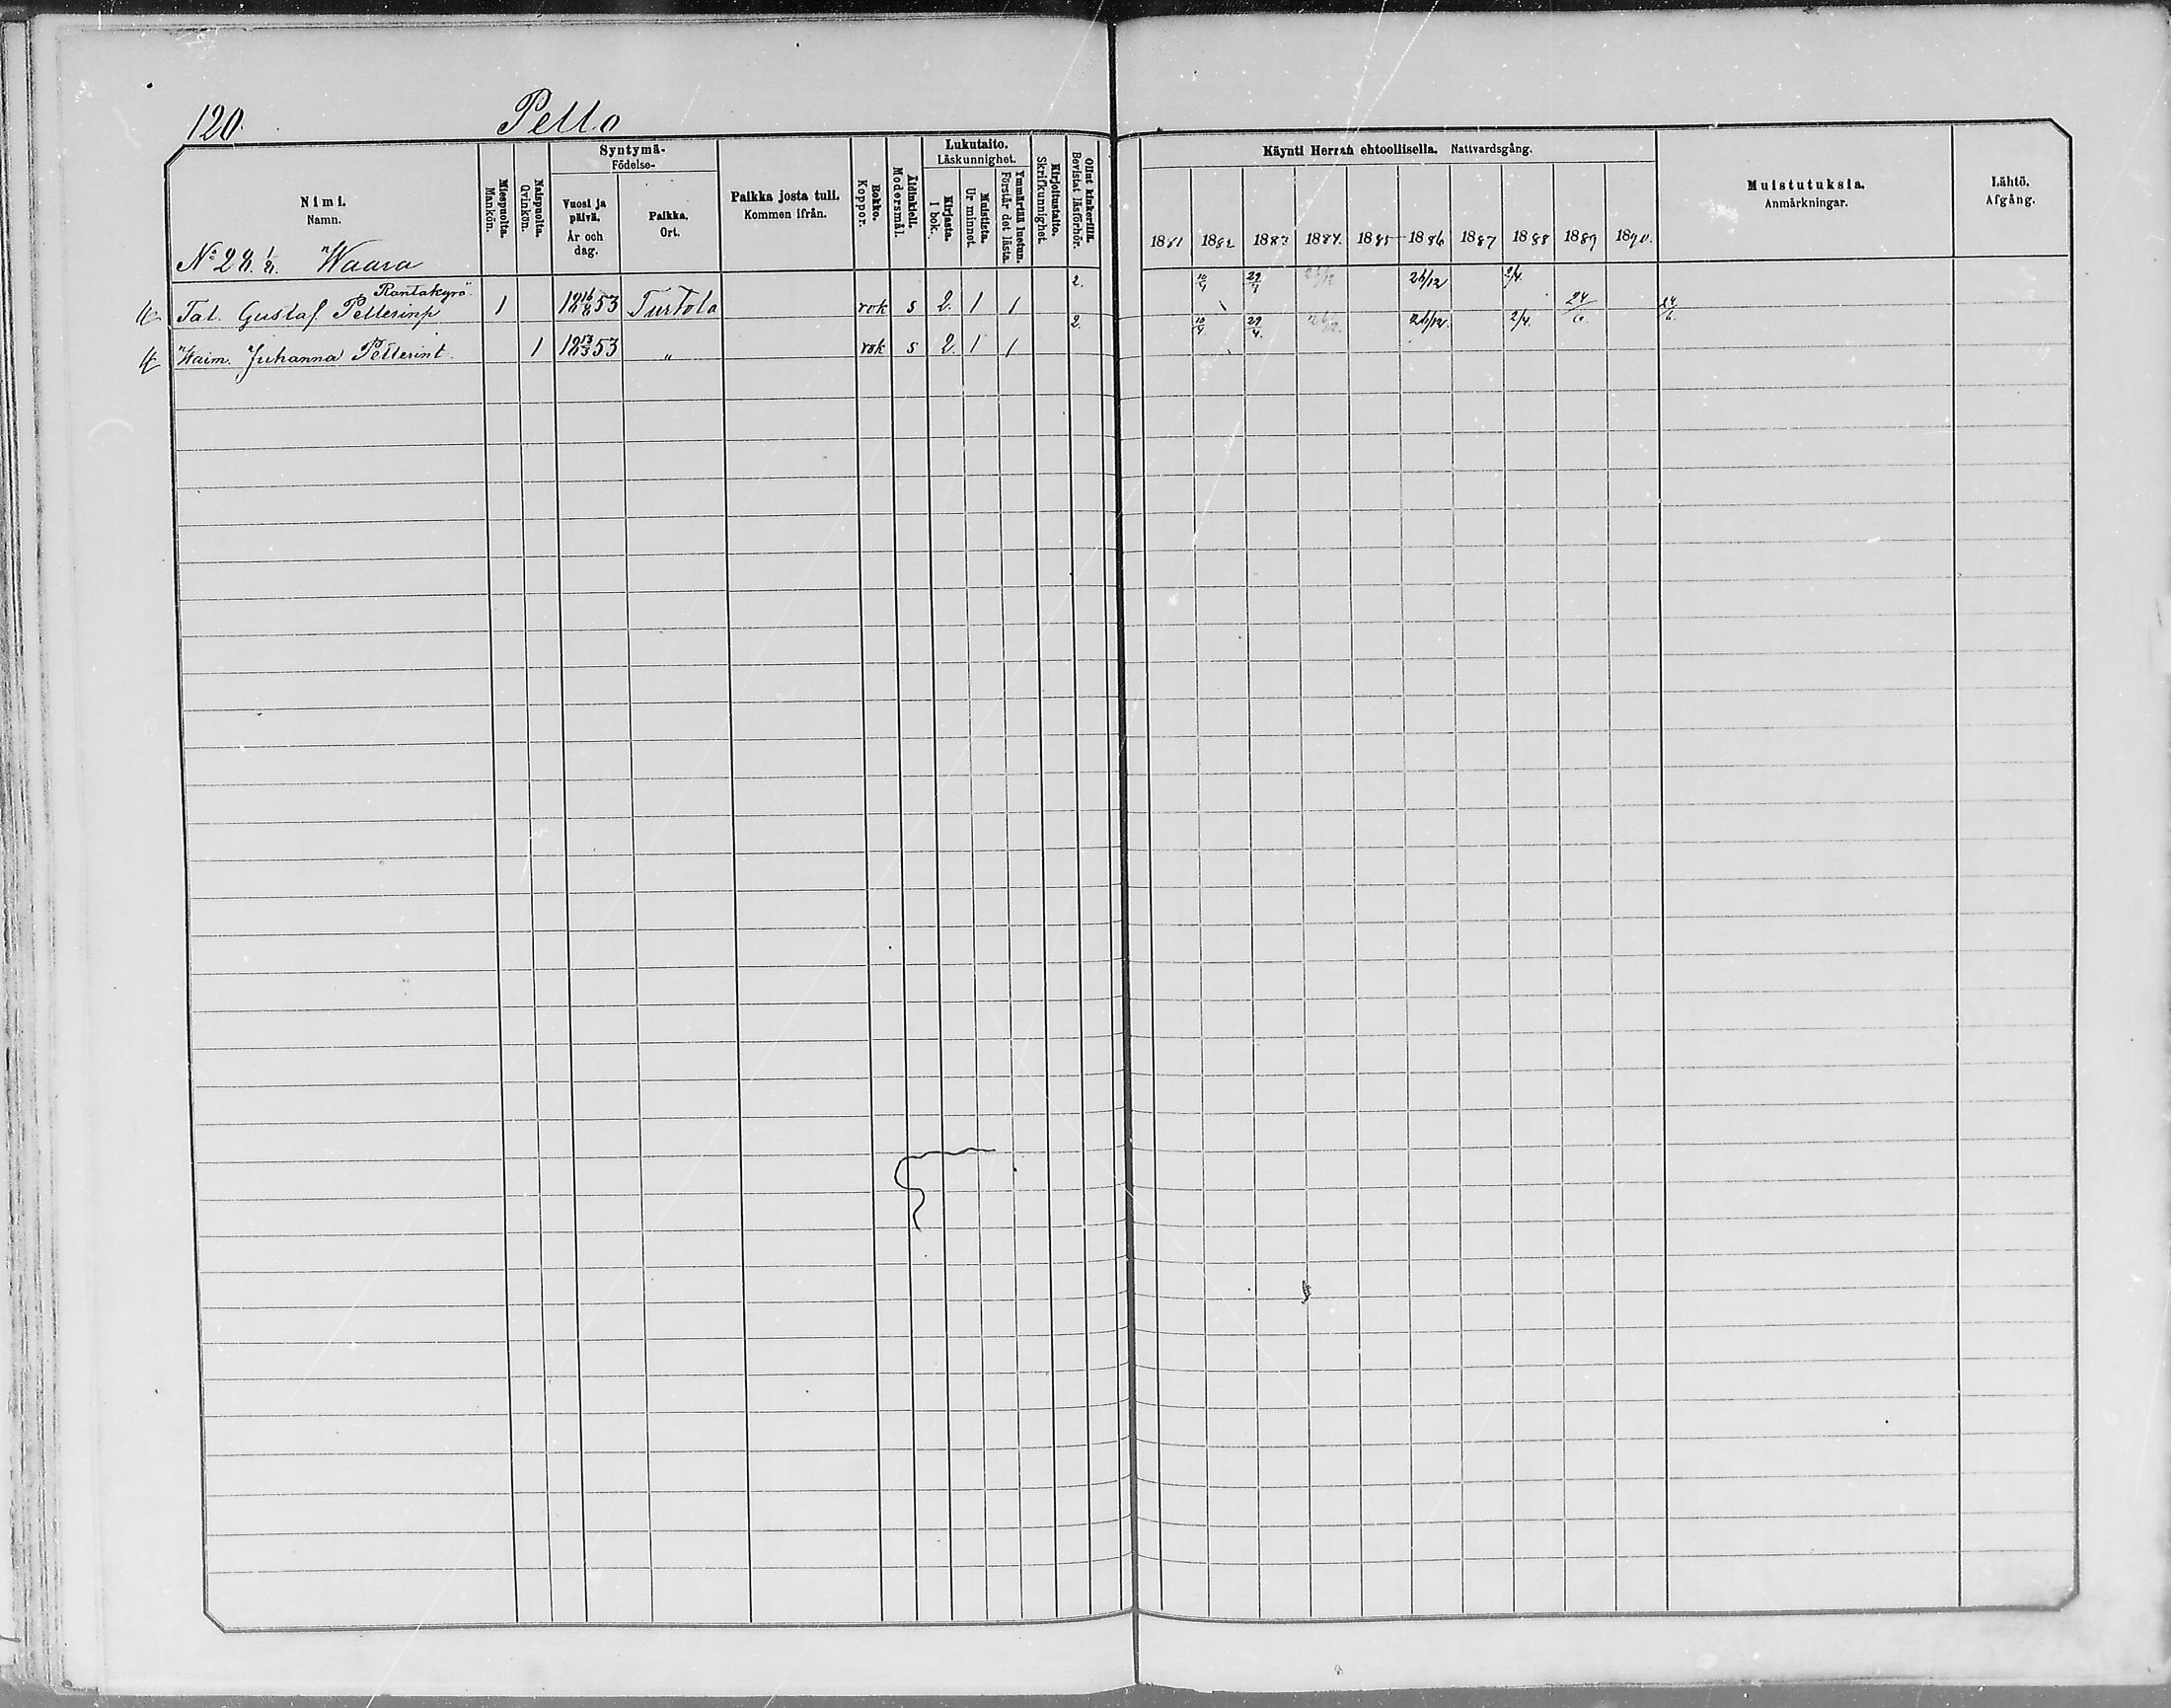 120.
Pello
Nimi.
Namn.
Miespuolta.
Mankön.
Naispuolta.
Qvinkön.
Syntymä-
Födelse-
Vuosi ja
päivä.
År och
dag.
Paikka.
Ort.
Paikka josta tuli.
Kommen ifrån.
Rokko.
Koppor.
Äidinkieli.
Modersmål.
Lukutaito.
Läskunnighet.
Kirjasta.
I bok.
Muistista.
Ur minnet.
Ymmärtää luetun.
Förstår det lästa.
Kirjoitustaito.
Skrifkunnighet.
Ollut kinkerillä.
Bevistat läsförhör.
Käynti Herran ehtoollisella. Nattvardsgång.
1881 1882 1883 1884. 1885 1886 1887 1888 1889 1890.
Muistutuksia.
Anmärkningar.
Lähtö.
Afgång.
No 28. Waara
Rantakyrö
Tal. Gustaf Pellerinp 1 18 16/8 53 Turtola rok s 2. 1 1 2. 29/4 26/12 26/12 2/4. 24/6 24/6.
Waim. Juhanna Pellerint. 1 18 13/3 53 " rok s 2. 1 1 2. 10/4. 29/4. 26/12. 26/12. 2/4.